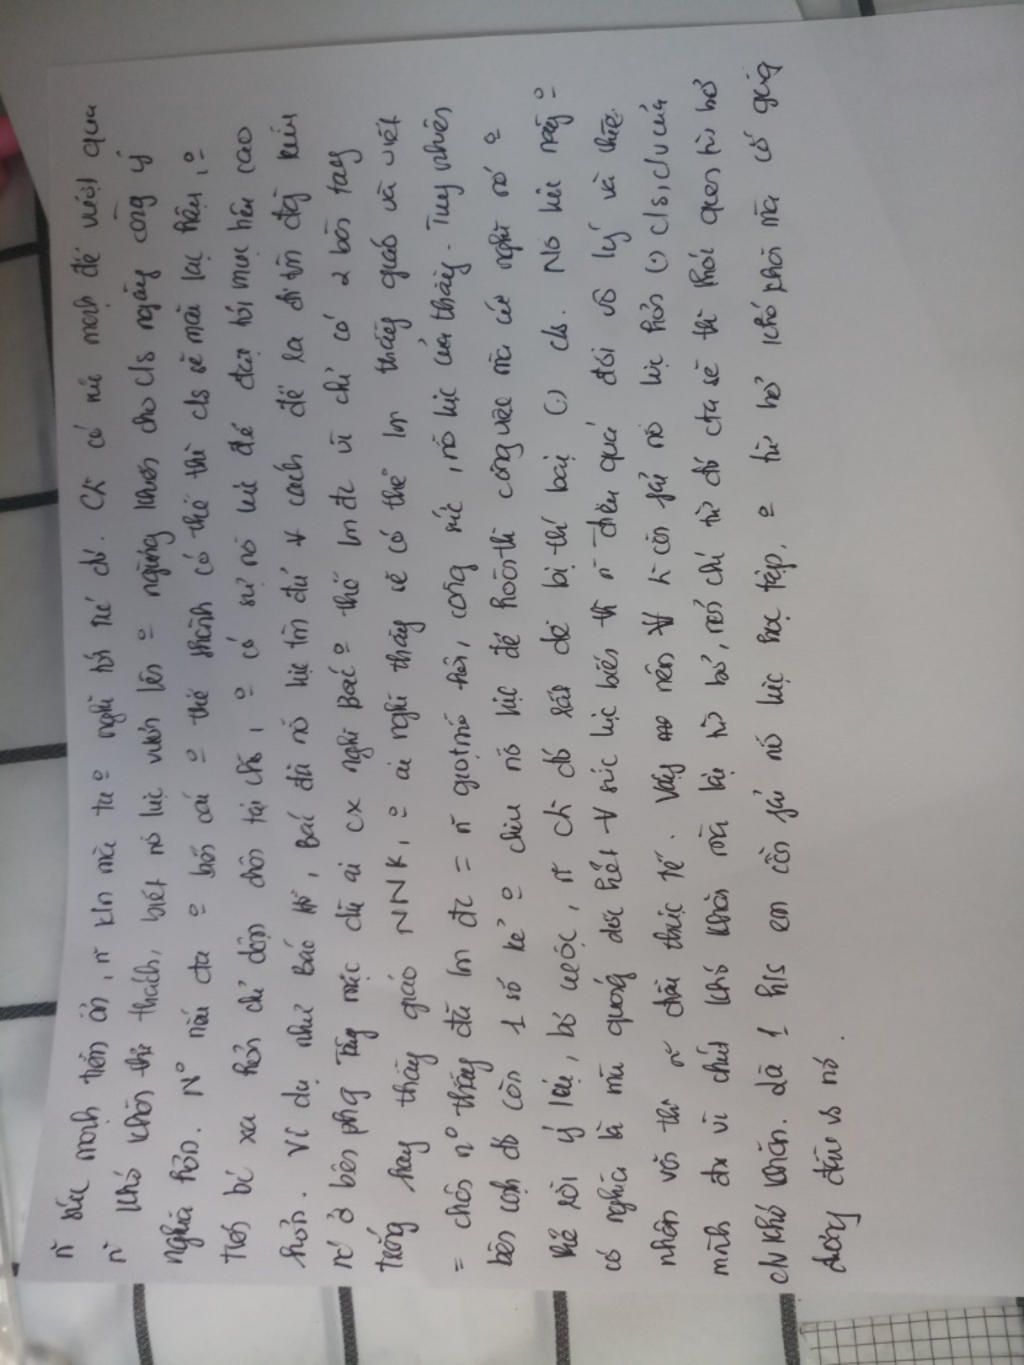 ñ sức mạnh tiềm ẩn, ñ kln mà ta o nghĩ tới trc đó. Chỉ có nó mạnh để vượt qua
ñ khó khăn thử thách, biết nỗ lực vươn lên = ngừng khiến cho c/s ngày càng ý
nghĩa hơn. No nếu cta o biến cái o thể thành có thể thì c/s sẽ mãi lạc hậu, o
tiến bộ xa hơn chỉ dậm chân tại chỗ, o có sự nỗ lực để đạt tới mục tiêu cao
hơn. Ví dụ như Bác Hồ, Bác đã nỗ lực tìm đủ ∀ cách để ra đi tìm đg cứu
nc ở bên phg Tây mặc dù ai cx nghĩ Bác o thể lm đc vì chỉ có 2 bàn tay
trắng hay thầy giáo NNK, o ai nghĩ thầy sẽ có thể lm thầy giáo và viết
= chân no thầy đã lm đc = ñ giọt mồ hôi, công sức, nỗ lực của thầy. Tuy nhiên
bên cạnh đó còn 1 số kẻ o chịu nỗ lực để hoàn thì công việc mà cứ nghĩ nó o
thể rồi ỷ lại, bỏ cuộc, ñ ch đó rất dễ bị thất bại (-) c/s. Nỗ lực này =
có nghĩa là mù quáng dốc hết ∀ sức lực biến th ñ điều quá đỗi vô lý và thiếu
nhân văn thì ñ điều thực tế. Vậy nên ∀ h cần phải nỗ lực hơn (-) c/s, c/v của
mình đx vì chút khó khăn mà lại từ bỏ, nếu chỉ từ đó cta sẽ thì thói quen từ bỏ
c/v khó khăn. Là 1 h/s em cần phải nỗ lực học tập, o từ bỏ khó khăn mà cố gắng
đương đầu vs nó.